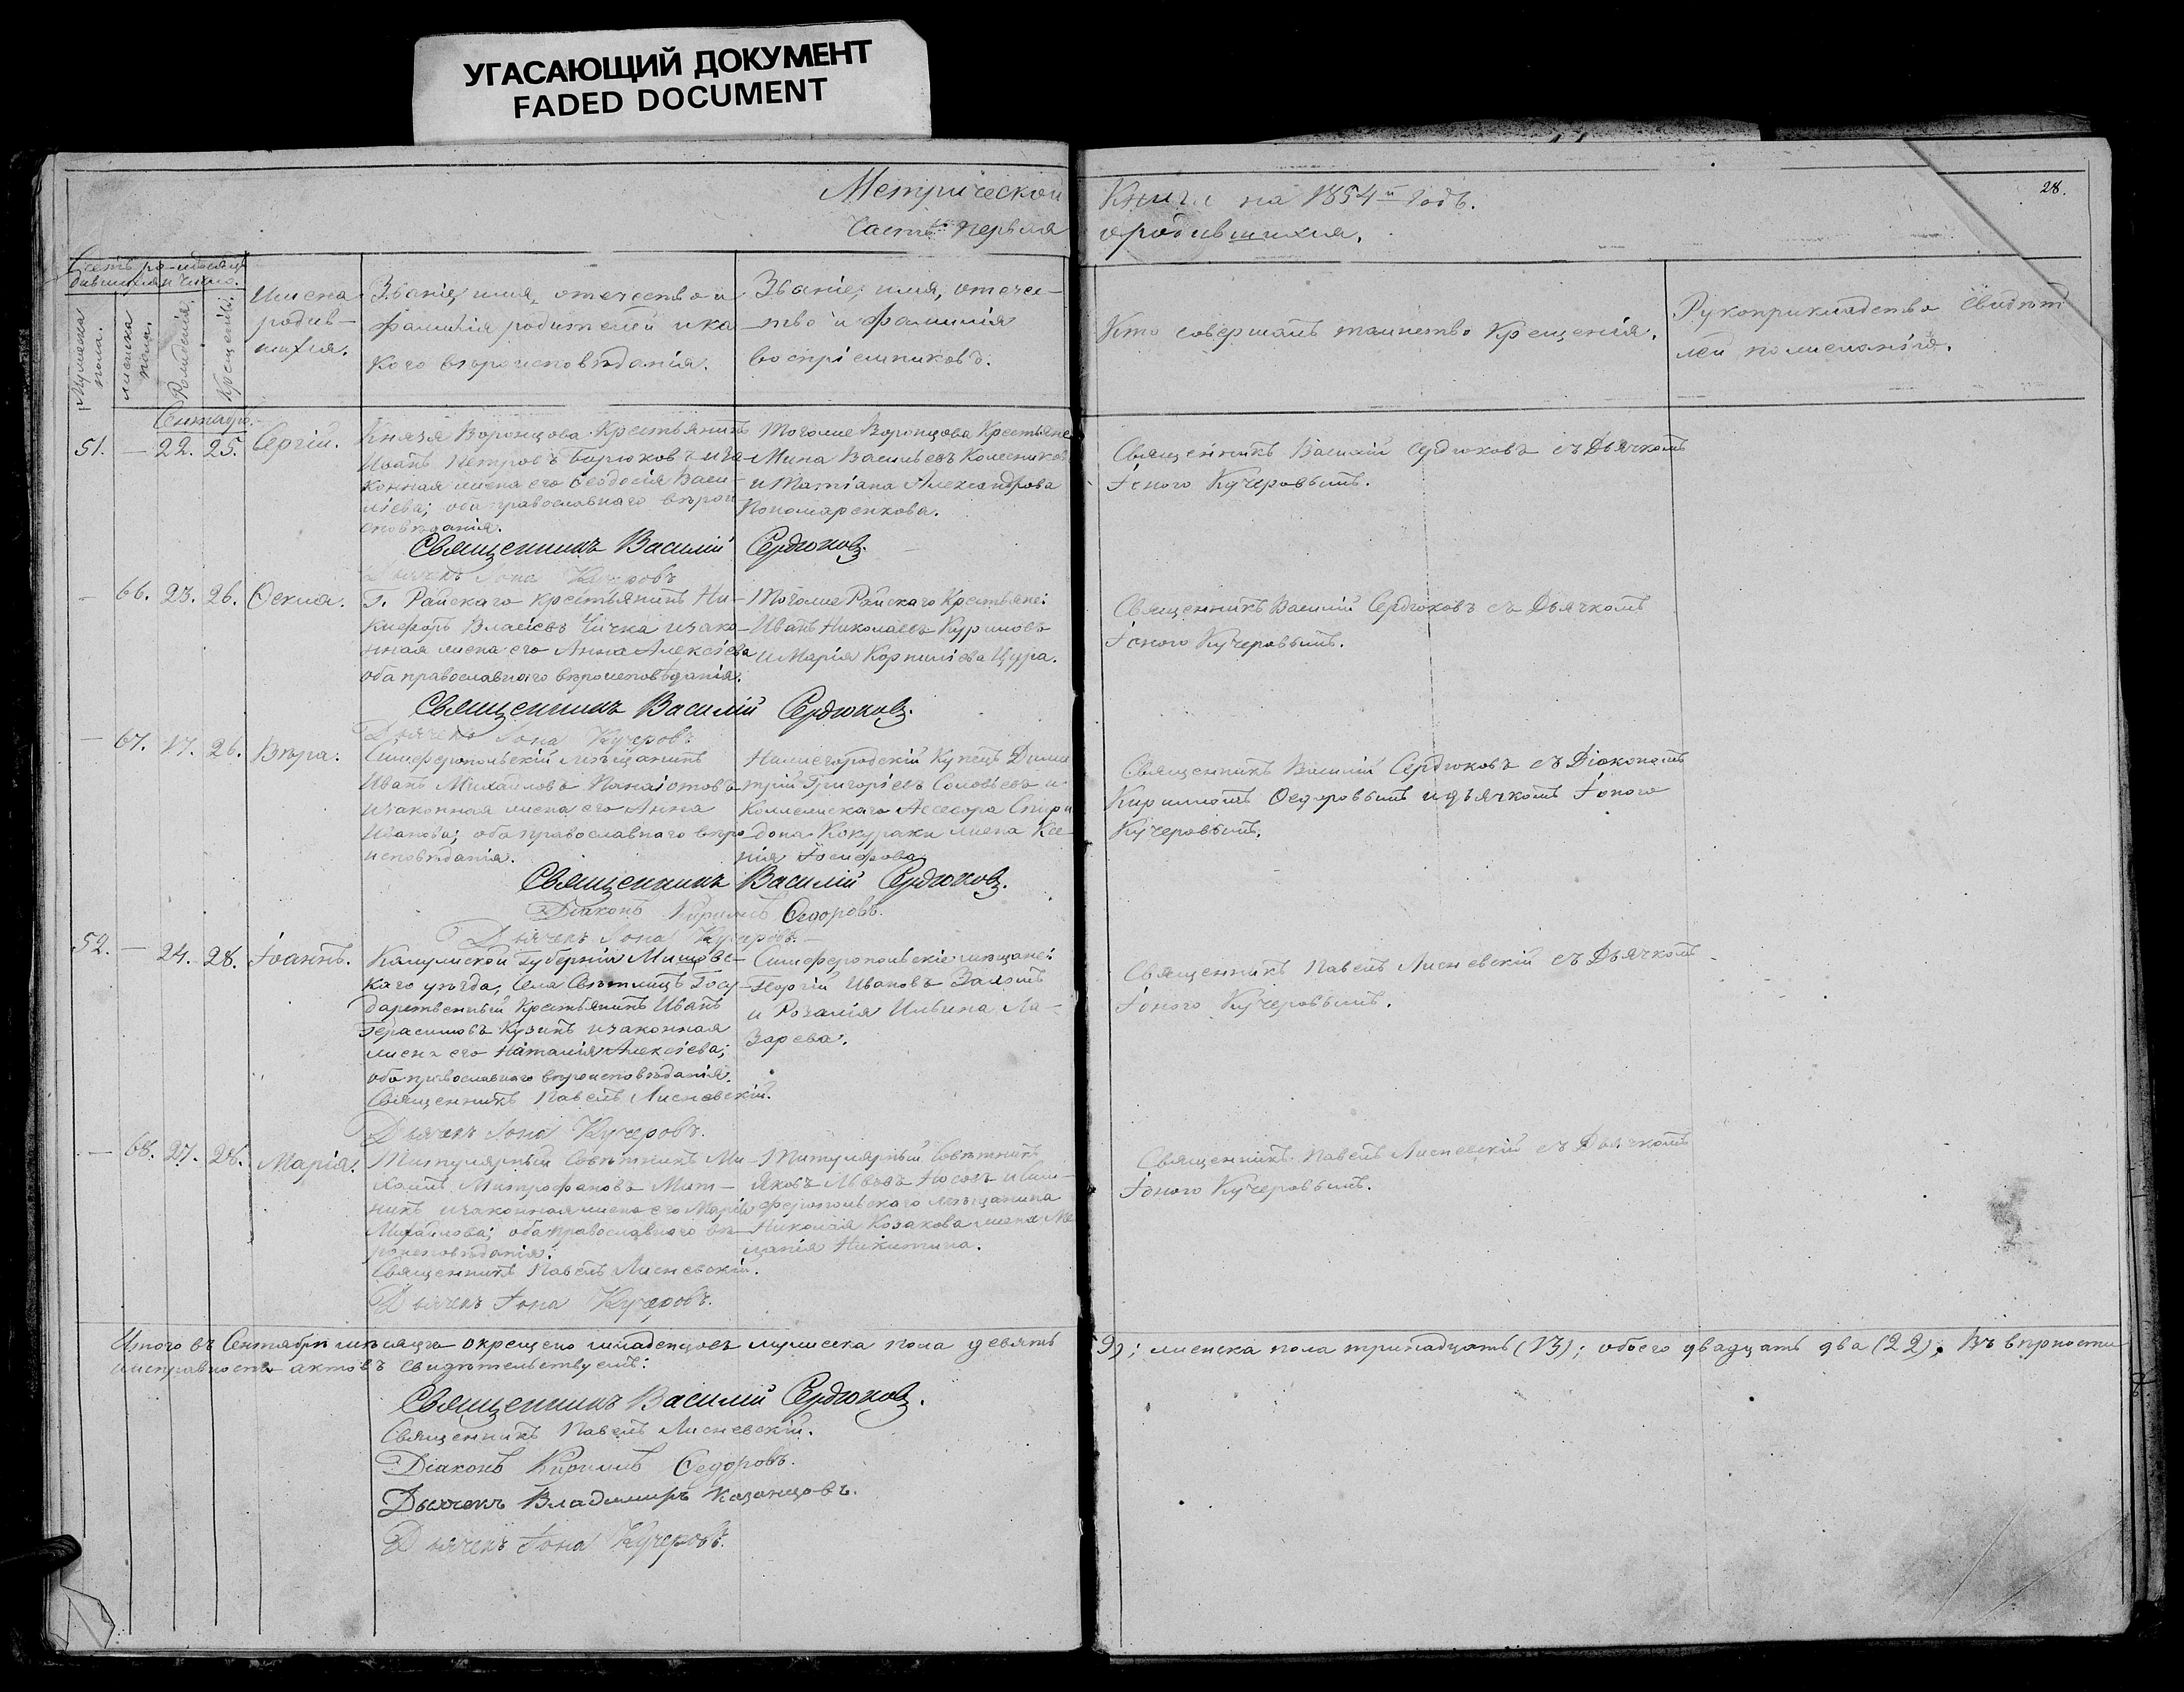 УГАСАЮЩИЙ ДОКУМЕНТ
FADED DOCUMENT
Метрической Книги на 1854й годъ.
28.
Часть первая о родившихся.
Счетъ родившихся
Мужеска пола.
женска пола.
Рожденія.
Крещенія.
Имена родив-
шихся.
Званіе, имя, отечество и
фамилія родителей и ка
кого вѣроисповѣданія.
Званіе, имя, отече-
ство и фамилія
воспріемниковъ.
Кто совершалъ таинство Крещенія.
Рукоприкладство свидѣт
лей по желанію.
Сентябрь
51. — 22. 25. Сергій.
Князя Воронцова Крестьянинъ
Иванъ Петровъ Бирюковъ и за-
конная жена его Ѳеодосія Васи-
льева; оба православнаго вѣрои
сповѣданія.
Тогоже Воронцова Крестьяне
Мина Васильевъ Колесников
и Татіана Александрова
Пономаренкова.
Священникъ Василій Сердюковъ съ Дьячкомъ
Іоною Кучеровымъ.
Священникъ Василій Сердюковъ.
Дьячекъ Іона Кучеровъ
— 66. 23. 26. Ѳекла.
Г. Райскаго крестьянинъ Ни-
кифоръ Власіевъ Чичка и зако-
нная жена его Анна Алексіева
оба православнаго вѣроисповѣданія.
Тогоже Райскаго Крестьяне:
Иванъ Николаевъ Куриловъ
и Марія Корниліева Цура.
Священникъ Василій Сердюковъ съ Дьячкомъ
Іоною Кучеровымъ.
Священникъ Василій Сердюковъ.
Дьячекъ Іона Кучеровъ
— 67. 17. 26. Вѣра.
Симферопольскій мѣщанинъ
Иванъ Михайловъ Панаіотовъ
и законная жена его Анна
Иванова; оба православнаго вѣро
исповѣданія.
Нижегородскій Купецъ Дими
трій Григоріевъ Соловьевъ и
Колежскаго Асесора Спири
дона Кокураки жена Ксе-
нія Іосифова
Священникъ Василій Сердюковъ съ Діакономъ
Кирилломъ Ѳедоровымъ и дьячкомъ Іоною
Кучеровымъ.
Священникъ Василій Сердюковъ.
Діаконъ Кириллъ Ѳедоровъ.
Дьячекъ Іона Кучеровъ.
52. — 24. 28. Іоаннъ.
Калужской Губерніи Мищовс-
каго уѣзда, села Госу-
дарственный Крестьянинъ Иванъ
Герасимовъ Кузинъ и законная
жена его Наталія Алексіева;
оба православнаго вѣроисповѣданія.
Симферопольскіе мѣщане:
Георгій Ивановъ
и Розалія Ильина Ла-
зарева.
Священникъ Павелъ Лисневскій съ Дьячкомъ
Іоною Кучеровымъ.
Священникъ Павелъ Лисневскій.
Дьячекъ Іона Кучеровъ.
— 68. 27. 28. Марія.
Титулярный Совѣтникъ Ми-
хаилъ Митрофановъ Мат-
нинъ и законная жена его Марія
Михайлова; оба православнаго вѣ-
роисповѣданія.
Титулярный Совѣтникъ
Яковъ Львовъ Носовъ и Сим-
феропольскаго мѣщанина
Николая Козакова жена Ме
ланія Никитина.
Священникъ Павелъ Лисневскій съ Дьячкомъ
Іоною Кучеровымъ.
Священникъ Павелъ Лисневскій.
Дьячекъ Іона Кучеровъ.
Итого въ Сентябрѣ мѣсяцѣ окрещено младенцовъ мужеска пола девять (9); женска пола тринадцать (13); обоего двадцать два (22). Въ вѣрности
и исправности актовъ свидѣтельствуемъ:
Священникъ Василій Сердюковъ.
Священникъ Павелъ Лисневскій.
Діаконъ Кириллъ Ѳедоровъ.
Дьячекъ Владимиръ Казанцовъ.
Дьячекъ Іона Кучеровъ.